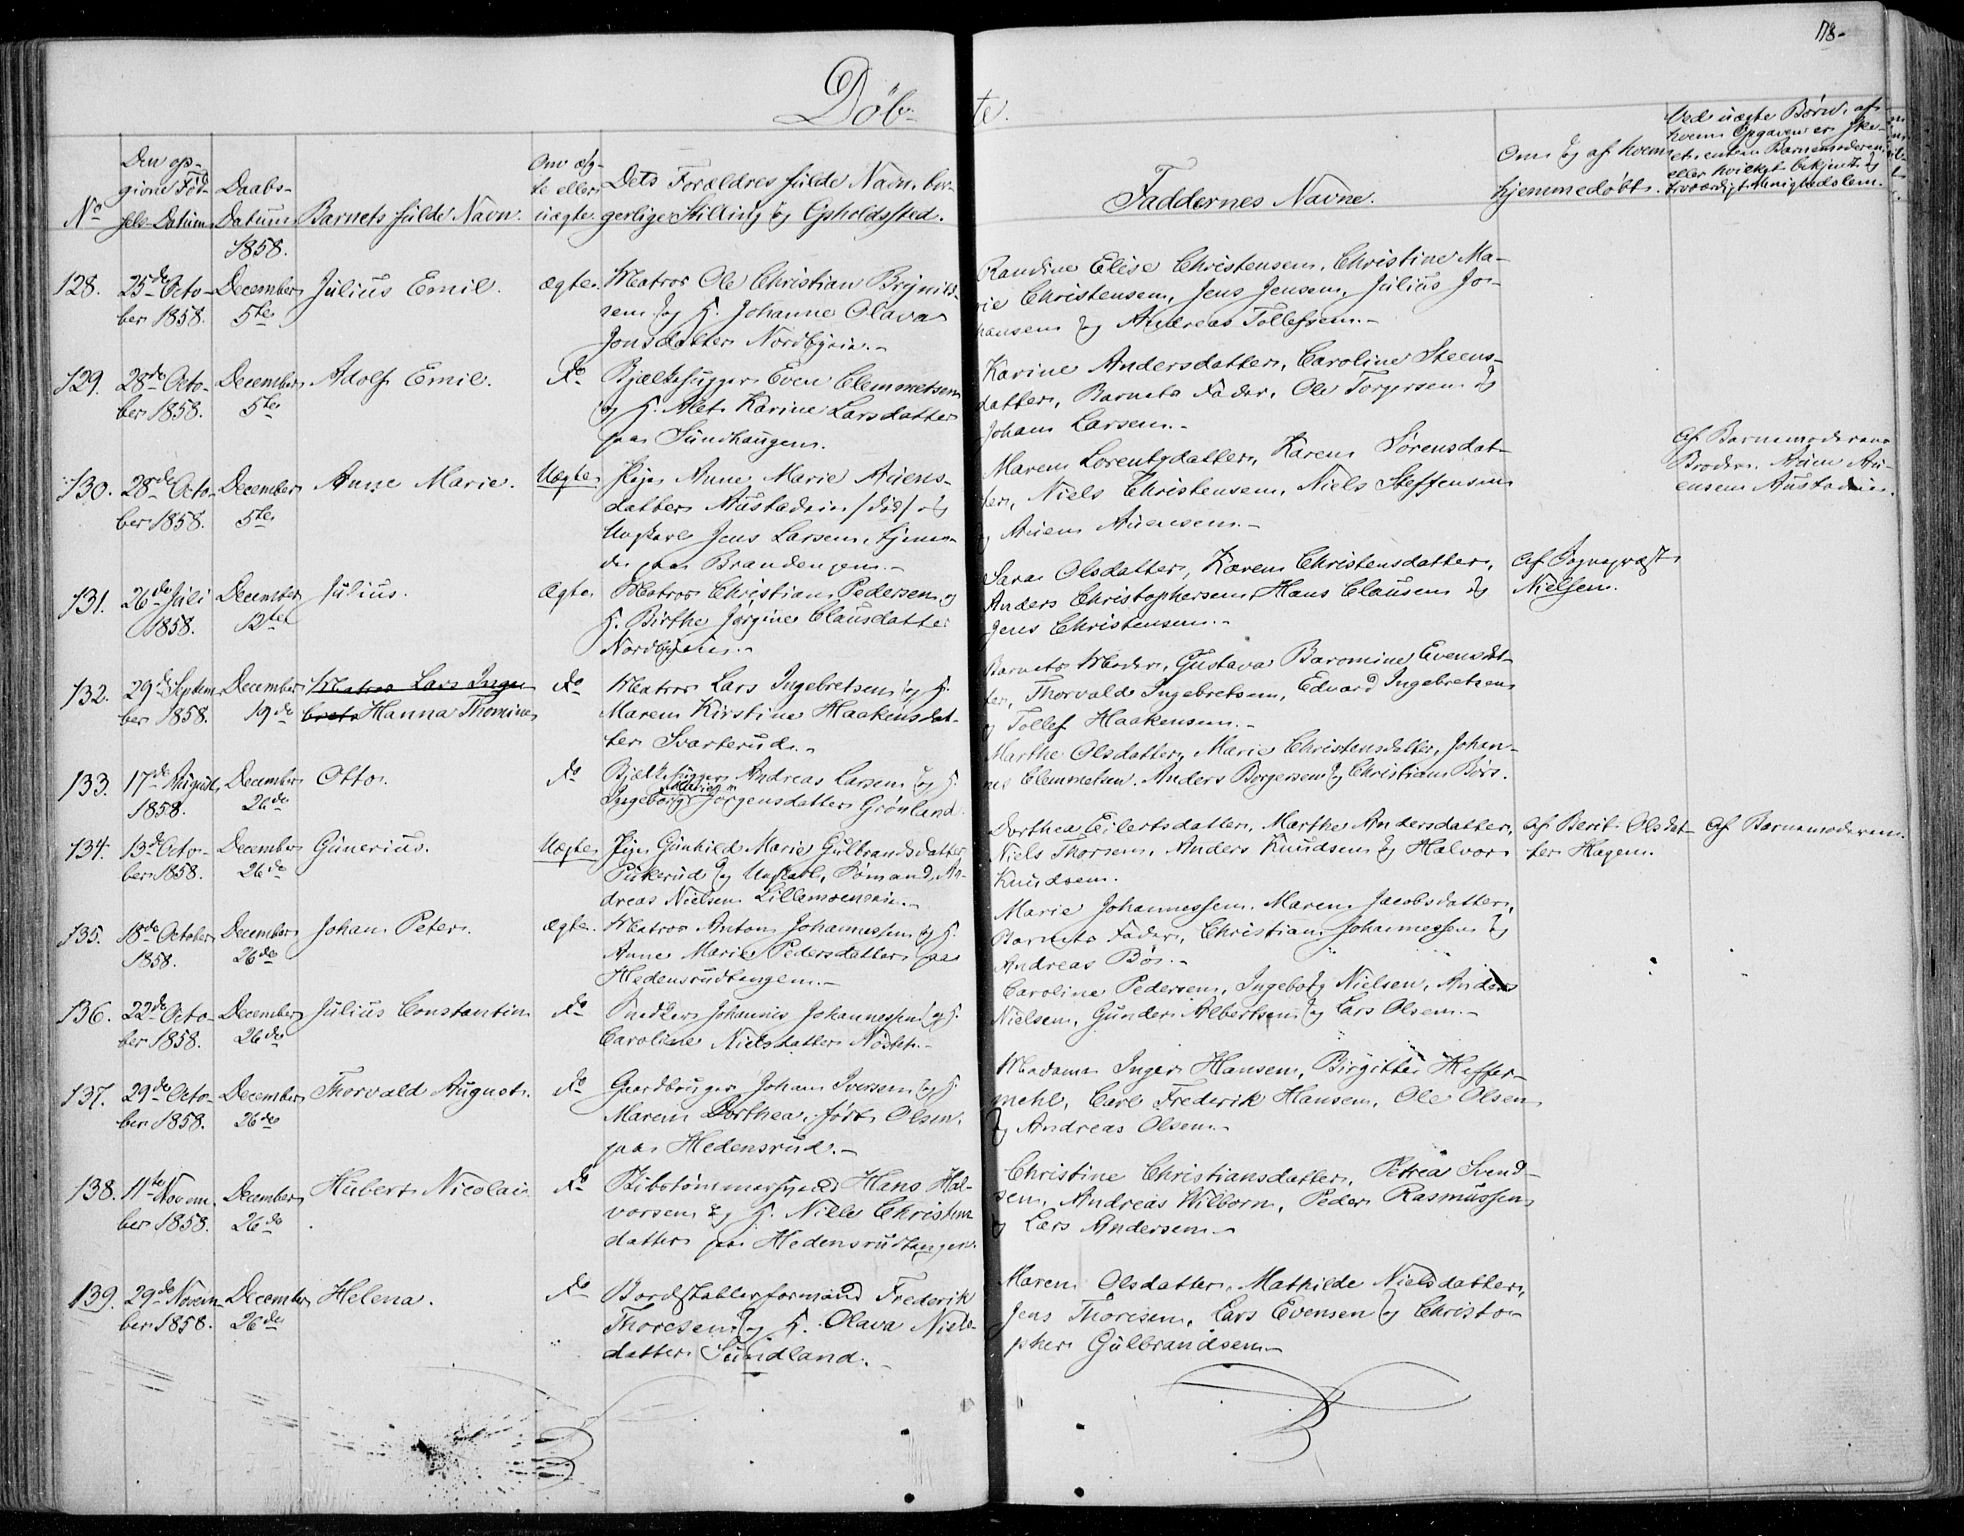 178.
Döbte.
No
Den op-
givne Föd-
sels-Datum.
Daabs-
Datum
1858.
Barnets fulde Navn.
Om æg-
te eller
uægte.
Dets Forældres fulde Navn, bor-
gerlige Stilling og Opholdssted.
Faddernes Navne.
Om og af hvem
hjemmedöbt.
Ved uægte Börn, af
hvem Opgaven er ske-
et, enten Barnemoderen
eller hvilket bekjendt og
troværdigt Menighedslem.
128.
25de Octo-
ber 1858.
December
5te
Julius Emil.
ægte.
Matros Ole Christian Brynils-
sen og H. Johanne Olava
Jonsdatter Nordbyeie.
Randine Elise Christensen, Christine Ma-
rie Christensen, Jens Jensen, Julius Jo-
hansen og Andreas Tollefsen.
129.
28de Octo-
ber 1858.
December
5te
Adolf Emil.
Do
Bjælkehugger Even Clemmetsen
og H. Alet Karine Larsdatter
paa Sundhaugen.
Karine Andersdatter, Caroline Steens-
datter, Barnets Fader, Ole Torgersen og
Johan Larsen.
130.
28de Octo-
ber 1858.
December
5te
Anne Marie.
Uægte
Pige Anne Marie Auens-
datter Austadeie /död/ og
Ungkarl Jens Larsen, tjenen-
de paa Brandengen.
Maren Lorentzdatter, Karen Sörensdat-
ter, Niels Christensen, Niels Steffensen
og Auen Auensen.
Af Barnemoderens
Broder, Auen Au-
ensen Austadeie.
131.
26de Juli
1858.
December
12te
Julius.
Ægte
Matros Christian Pedersen og
H. Birthe Jörgine Clausdatter
Nordbyeie.
Sara Olsdatter, Karen Christensdatter,
Anders Christophersen, Hans Clausen og
Jens Christensen.
Af Sogneprest
Nielsen.
132.
29de Septem-
ber 1858.
December
19de
Matros Lars Inge-
brets Hanna Thomine
Do
Matros Lars Ingebretsen og H.
Maren Kirstine Haakensdat-
ter Svarterud.
Barnets Moder, Gustava Baromine Evensdat-
ter, Thorvald Ingebretsen, Edvard Ingebretsen
og Tollef Haakensen.
133.
17de August
1858.
December
26de
Otto.
Do
Bjælkehugger Andreas Larsen og H.
Ingeborg Jörgensdatter Grönland.
Marthe Olsdatter, Marie Christensdatter, Johan-
nes Clemmetsen, Anders Borgersen og Christian Börs.
134.
13de Octo-
ber 1858.
December
26de
Gunerius.
Uægte
Pige Gunhild Marie Gulbrandsdatter
Pukerud og Ungkarl, Sömand, An-
dreas Nielsen Lillemoeneie.
Dorthea Eilertsdatter, Marthe Andersdatter,
Niels Thorsen, Anders Knudsen og Halvor
Knudsen.
Af Berit Olsdat-
ter Hagen.
Af Barnemoderen.
135.
18de October
1858.
December
26de
Johan Peter.
ægte.
Matros Anton Johannessen og H.
Anne Marie Pedersdatter paa
Hedensrudtangen.
Marie Johannessen, Maren Jacobsdatter,
Barnets Fader, Christian Johannessen og
Andreas Bös.
136.
22de Octo-
ber 1858.
December
26de
Julius Constantin
Do
Snedker Johannes Johannessen og H.
Caroline Nielsdatter Nöste.
Caroline Pedersen, Ingeborg Nielsen, Anders
Nielsen, Gunder Albertsen og Lars Olsen.
137.
29de Octo-
ber 1858.
December
26de
Thorvald August.
Do
Gaardbruger Johan Iversen og H.
Maren Dorthea, föd Olsen,
paa Hedensrud.
Madame Inger Hansen, Birgitte Heffer-
mehl, Carl Frederik Hansen, Ole Olsen
og Andreas Olsen.
138.
11te Novem-
ber 1858.
December
26de
Hubert Nicolai
Do
Skibstömmersvend Hans Hal-
vorsen og H. Nille Christens-
datter paa Hedensrudtangen.
Christine Christiansdatter, Petrea Svend-
sen, Andreas Wilborn, Peder Rasmussen
og Lars Andersen.
139.
29de Novem-
ber 1858.
December
26de
Helena.
Do
Bordstablerformand Frederik
Thoresen og H. Olava Niels-
datter Sundland.
Maren Olsdatter, Mathilde Nielsdatter,
Jens Thoresen, Lars Evensen og Christo-
pher Gulbrandsen.